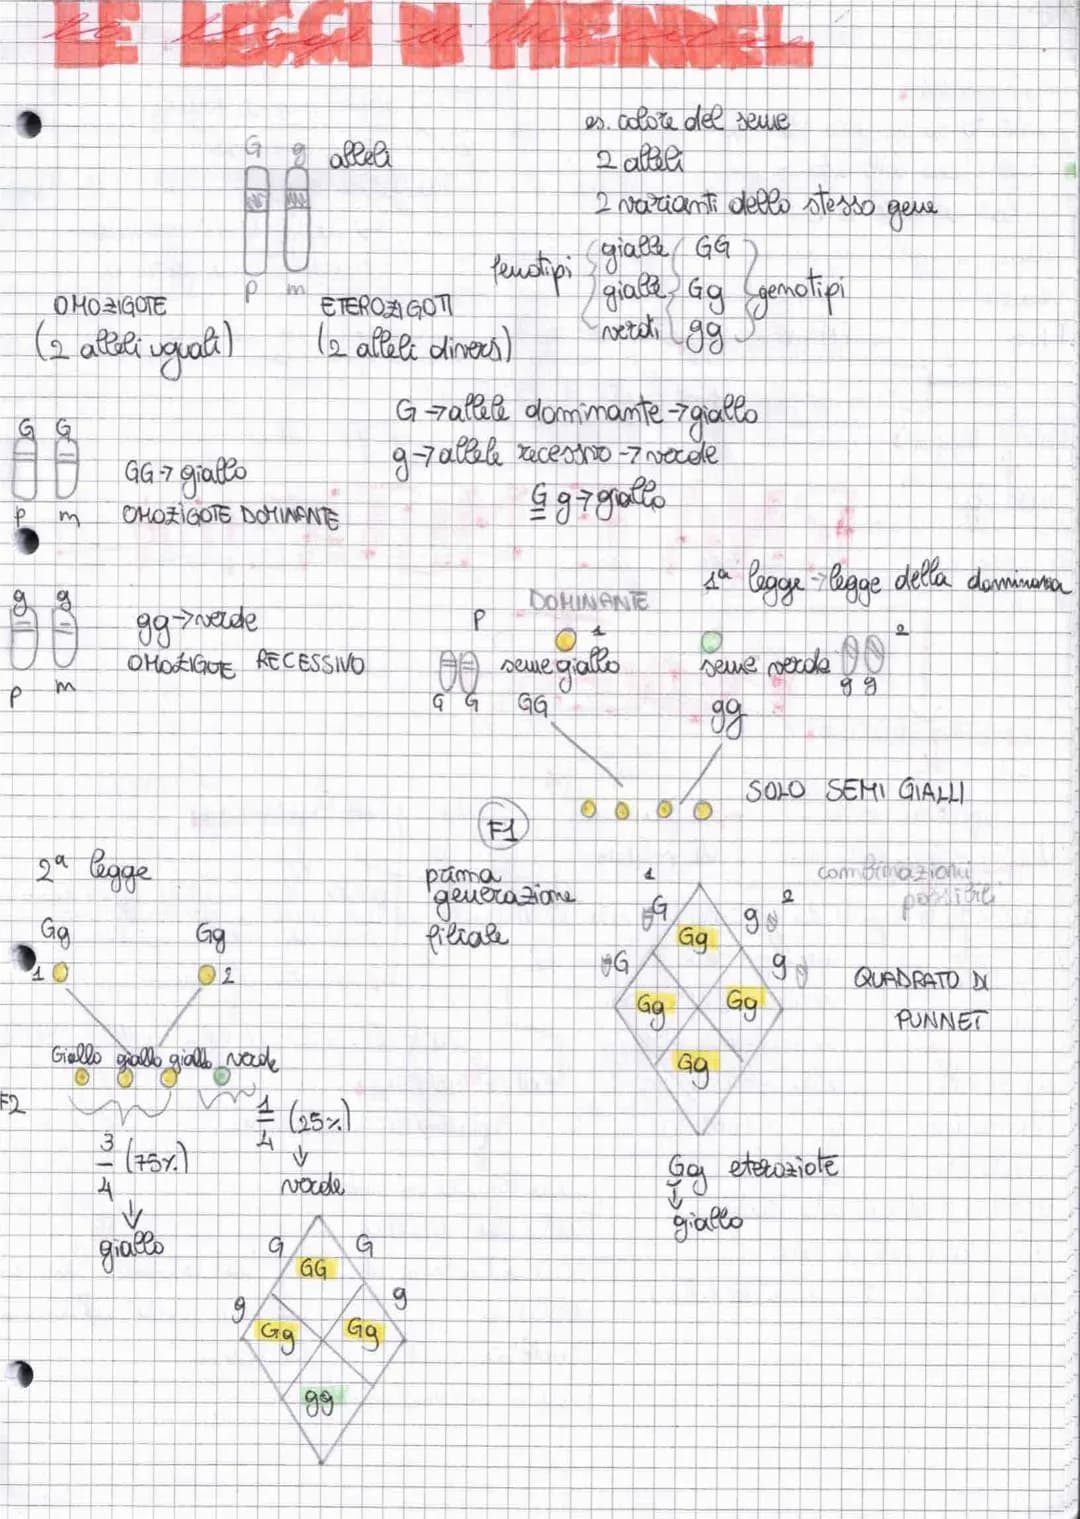 LE LEGGI DI MENDEL
Le leggi di Mendel
es. colore del seme
G g alleli
2 alleli
2 varianti dello stesso gene
p m
fenotipi
gialli GG
gialli Gg genotipi
verdi gg
OMOZIGOTE
(2 alleli uguali)
ETEROZIGOTI
(2 alleli diversi)
G → allele dominante → giallo
g → allele recessivo → verde
G g → giallo
G G
GG → giallo
p m
OMOZIGOTE DOMINANTE
1ª legge → legge della dominanza
g g
gg → verde
OMOZIGOTE RECESSIVO
p m
P
DOMINANTE
1
seme giallo
G G GG
2
seme verde
g g
gg
SOLO SEMI GIALLI
F1
prima
generazione
filiale
combinazioni
possibili
1 2
G g
G g
Gg
Gg Gg
Gg
QUADRATO DI
PUNNET
Gg eteroziote
giallo
2ª legge
Gg Gg
1 2
Giallo giallo giallo verde
F2
3/4 (75%)
giallo
1/4 (25%)
verde
G G
g g
GG
Gg Gg
gg